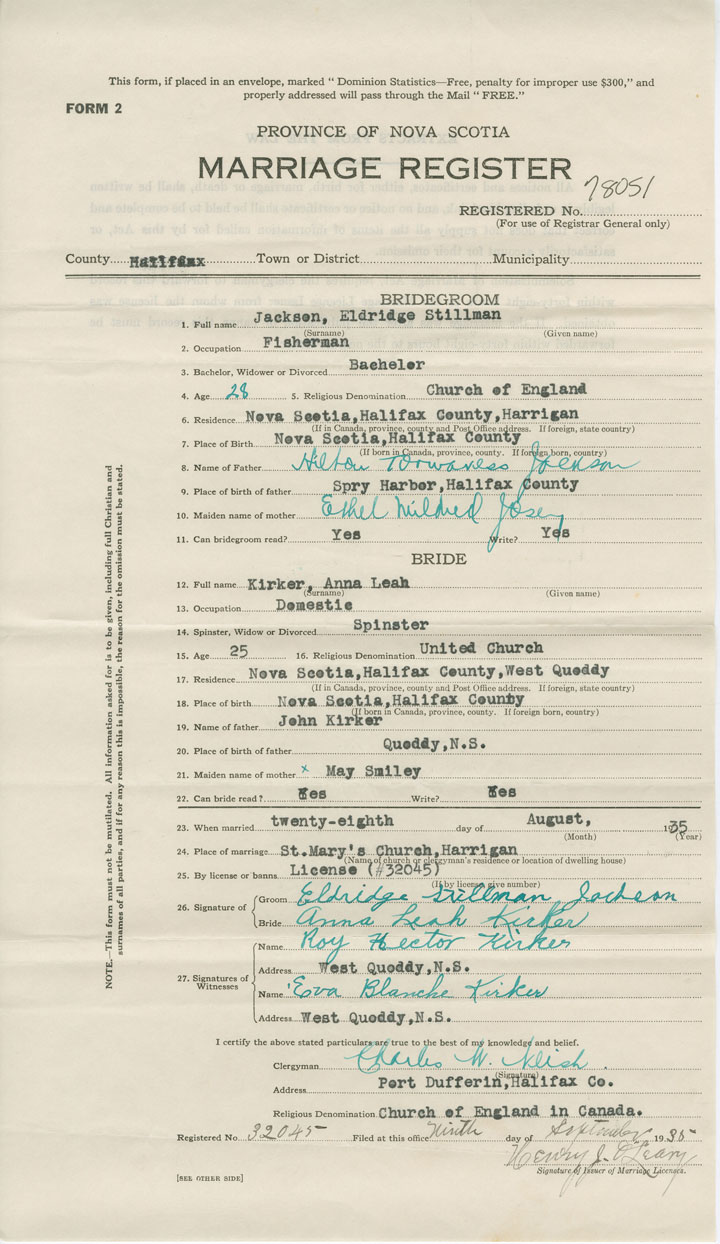 This form, if placed in an envelope, marked " Dominion Statistics—Free, penalty for improper use $300," and
properly addressed will pass through the Mail " FREE."
FORM 2
PROVINCE OF NOVA SCOTIA
MARRIAGE REGISTER
78051
REGISTERED No.
(For use of Registrar General only)
County Halifax Town or District Municipality
BRIDEGROOM
1. Full name Jackson, Eldridge Stillman
(Surname) (Given name)
2. Occupation Fisherman
3. Bachelor, Widower or Divorced Bachelor
4. Age 28 5. Religious Denomination Church of England
6. Residence Nova Scotia,Halifax County,Harrigan
(If in Canada, province, county and Post Office address. If foreign, state country)
7. Place of Birth Nova Scotia,Halifax County
(If born in Canada, province, county. If foreign born, country)
8. Name of Father Hilton Jackson
9. Place of birth of father Spry Harbor,Halifax County
10. Maiden name of mother Ethel Mildred Josey
11. Can bridegroom read? Yes Write? Yes
BRIDE
12. Full name Kirker, Anna Leah
(Surname) (Given name)
13. Occupation Domestic
14. Spinster, Widow or Divorced Spinster
15. Age 25 16. Religious Denomination United Church
17. Residence Nova Scotia,Halifax County,West Quoddy
(If in Canada, province, county and Post Office address. If foreign, state country)
18. Place of birth Nova Scotia,Halifax County
(If born in Canada, province, county. If foreign born, country)
19. Name of father John Kirker
20. Place of birth of father Quoddy,N.S.
21. Maiden name of mother x May Smiley
22. Can bride read? Yes Write? Yes
23. When married twenty-eighth day of August, 1935
(Month) (Year)
24. Place of marriage St.Mary's Church,Harrigan
(Name of church or clergyman's residence or location of dwelling house)
25. By license or banns License (#32045)
(If by license, give number)
26. Signature of Groom Eldridge Stillman Jackson
Bride Anna Leah Kirker
27. Signatures of Witnesses
Name Roy Hector Kirker
Address West Quoddy,N.S.
Name Eva Blanche Kirker
Address West Quoddy,N.S.
I certify the above stated particulars are true to the best of my knowledge and belief.
Clergyman Charles W. Neish
(Signature)
Address Port Dufferin,Halifax Co.
Religious Denomination Church of England in Canada.
Registered No. 32045 Filed at this office Ninth day of September 1935
Henry J. O'Leary
Signature of Issuer of Marriage Licenses.
[SEE OTHER SIDE]
NOTE.—This form must not be mutilated. All information asked for is to be given, including full Christian and
surnames of all parties, and if for any reason this is impossible, the reason for the omission must be stated.